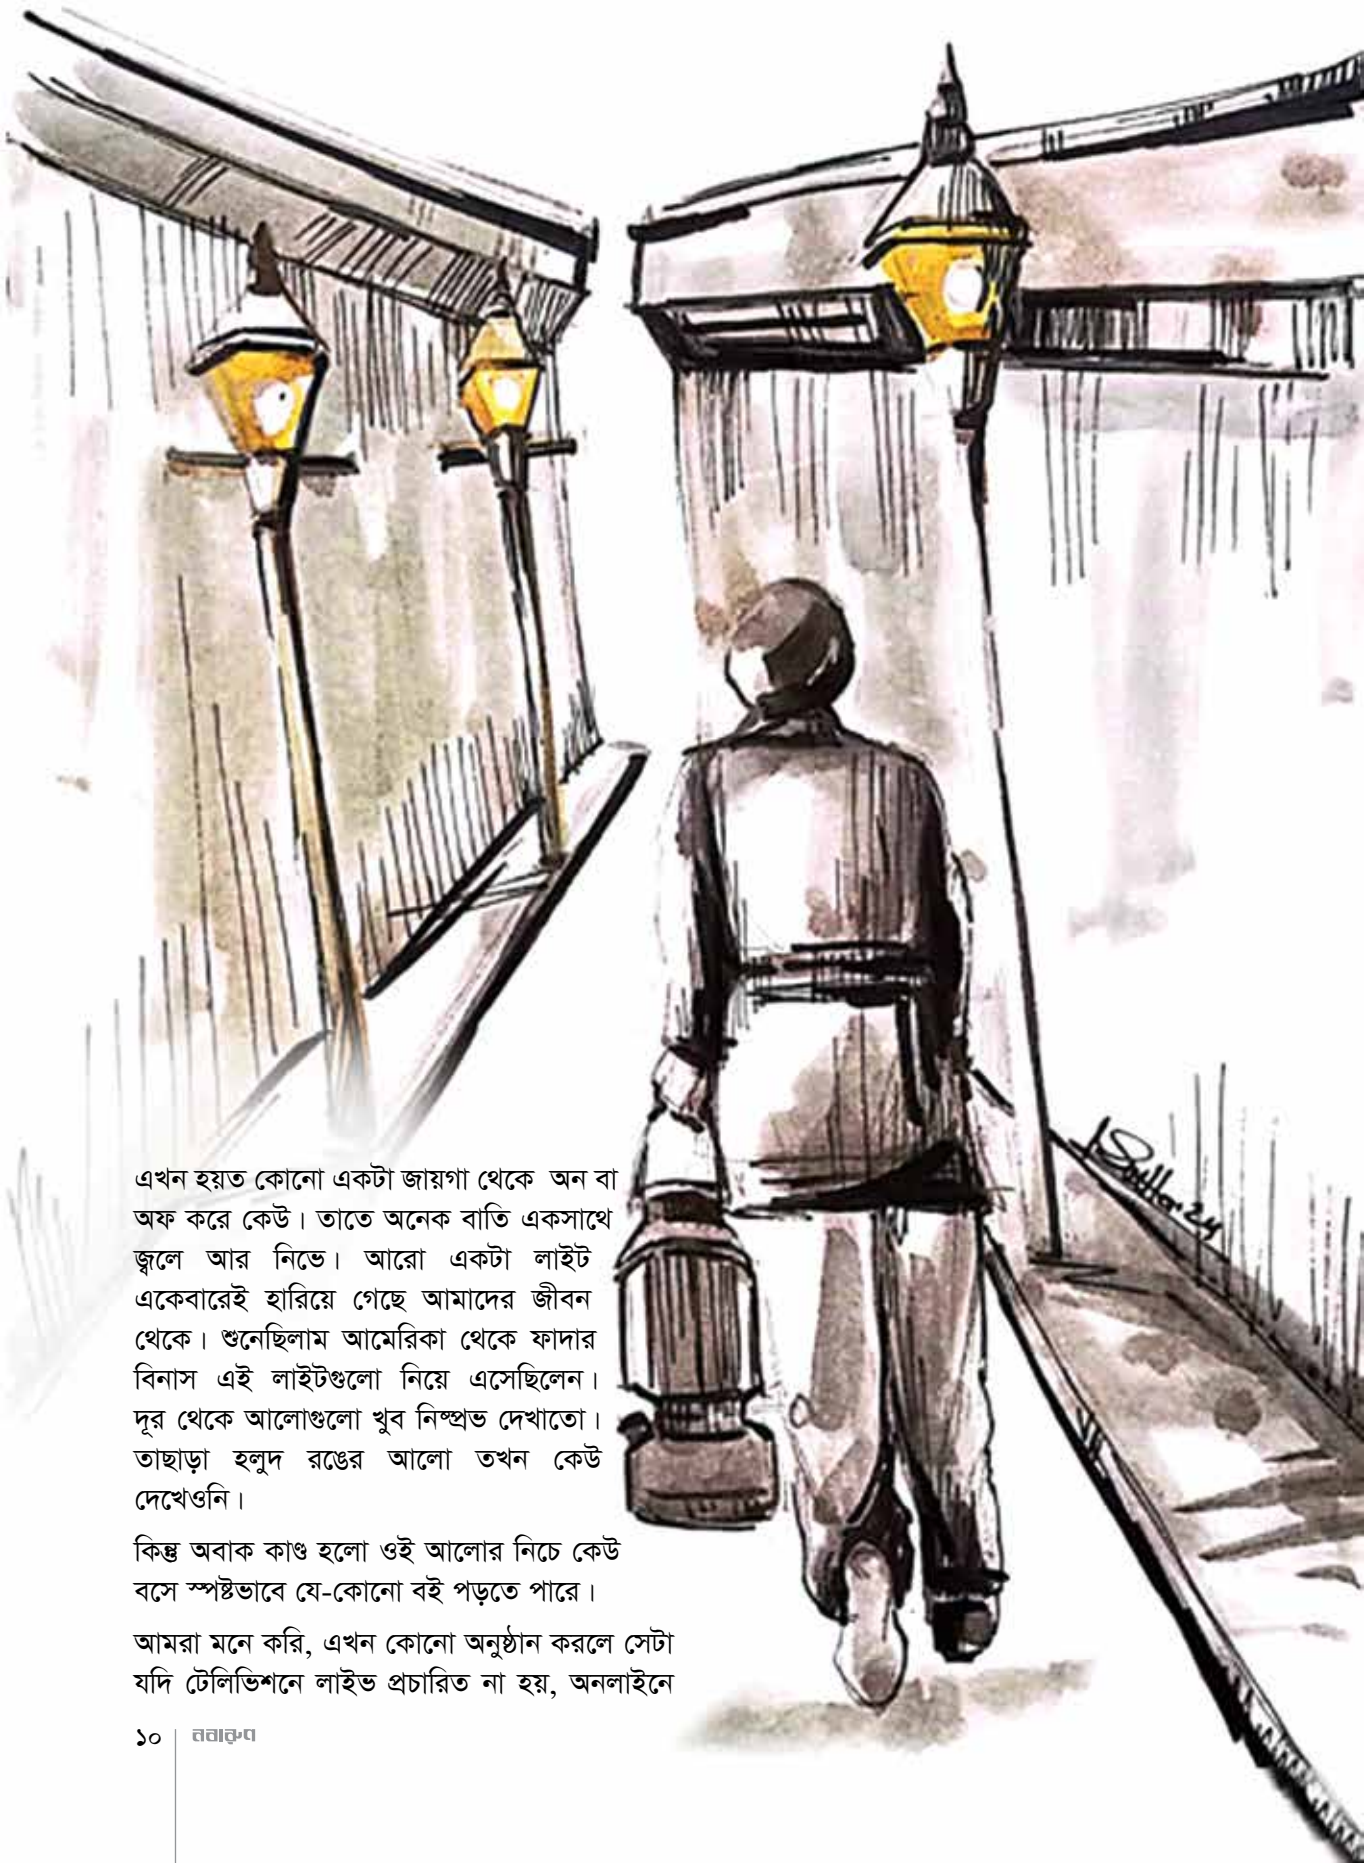 এখন হয়ত কোনো একটা জায়গা থেকে অন বা
অফ করে কেউ। তাতে অনেক বাতি একসাথে
জ্বলে আর নিভে। আরো একটা লাইট
একেবারেই হারিয়ে গেছে আমাদের জীবন
থেকে। শুনেছিলাম আমেরিকা থেকে ফাদার
বিনাস এই লাইটগুলো নিয়ে এসেছিলেন।
দূর থেকে আলোগুলো খুব নিষ্প্রভ দেখাতো।
তাছাড়া হলুদ রঙের আলো তখন কেউ
দেখেওনি।
কিন্তু অবাক কাণ্ড হলো ওই আলোর নিচে কেউ
বসে স্পষ্টভাবে যে-কোনো বই পড়তে পারে।
আমরা মনে করি, এখন কোনো অনুষ্ঠান করলে সেটা
যদি টেলিভিশনে লাইভ প্রচারিত না হয়, অনলাইনে
১০
নবারুণ